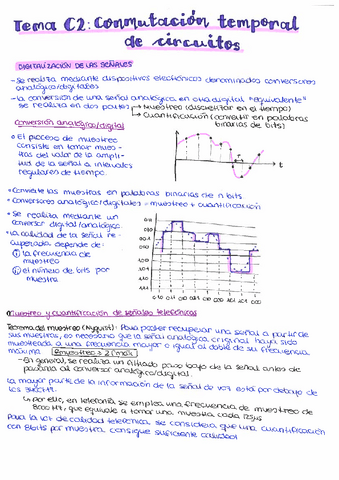 Tema C2: Conmutación temporal
de circuitos
DIGITALIZACIÓN DE LAS SEÑALES
- Se realiza mediante dispositivos electrónicos denominados conversores
analógico/digitales
- La conversión de una señal analógica en otra digital "equivalente"
se realiza en dos partes: Muestreo (discretizar en el tiempo)
Cuantificación (convertir en palabras
binarias de bits)
Conversión analógica/digital
• El proceso de muestreo
consiste en tomar mues-
tras del valor de la ampli-
tud de la señal a intervalos
regulares de tiempo.
t
• Convierte las muestras en palabras binarias de n bits
• Conversores analógico/digitales = muestreo + cuantificación
• Se realiza mediante un
conversor digital/analógico.
• La calidad de la señal re-
cuperada depende de:
① la frecuencia de
muestreo
② el número de bits por
muestra
Muestreo y cuantificación de señales telefónicas
Teorema del muestreo (Nyquist): Para poder recuperar una señal a partir de
sus muestras, es necesario que la señal analógica original haya sido
muestreada a una frecuencia mayor o igual al doble de su frecuencia
máxima. fmuestreo ≥ 2 fmax
- En general, se realiza un filtrado paso bajo de la señal antes de
pasarla al conversor analógico/digital.
La mayor parte de la información de la señal de voz está por debajo de
los
↳ por ello, en telefonía se emplea una frecuencia de muestreo de
8000 Hz, que equivale a tomar una muestra cada 125μs
Para la voz de calidad telefónica, se considera que una cuantificación
con 8 bits por muestra, consigue suficiente calidad